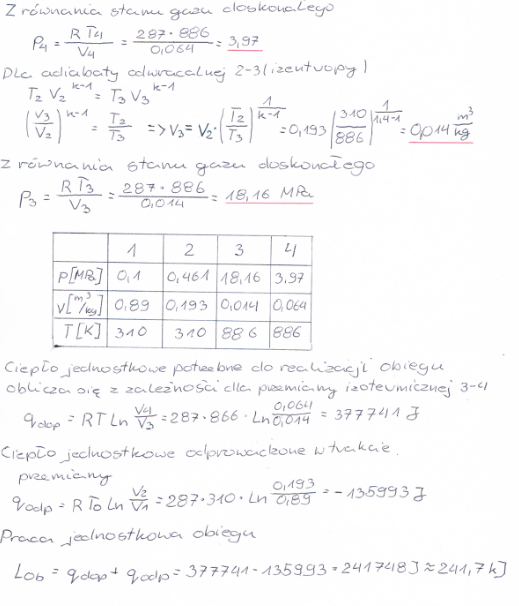 Z równania stanu gazu doskonałego
P4 = R T4 / V4 = 287·886 / 0,064 = 3,97
Dla adiabaty odwracalnej 2-3 (izentropy)
T2 V2^k-1 = T3 V3^k-1
(V3/V2)^k-1 = T2/T3 => V3 = V2·(T2/T3)^1/k-1 = 0,193 (310/886)^1/1,4-1 = 0,014 m³/kg
Z równania stanu gazu doskonałego
P3 = R T3 / V3 = 287·886 / 0,014 = 18,16 MPa
1 2 3 4
P[MPa] 0,1 0,461 18,16 3,97
V[m³/kg] 0,89 0,193 0,014 0,064
T[K] 310 310 886 886
Ciepło jednostkowe potrzebne do realizacji obiegu
oblicza się z zależności dla przemiany izotermicznej 3-4
qdop = RT Ln V4/V3 = 287·866·Ln 0,064/0,014 = 377741 J
Ciepło jednostkowe odprowadzone w trakcie
przemiany
qodp = R T0 Ln V2/V1 = 287·310·Ln 0,193/0,89 = -135993 J
Praca jednostkowa obiegu
Lob = qdop + qodp = 377741 - 135993 = 241748 J ≈ 241,7 kJ